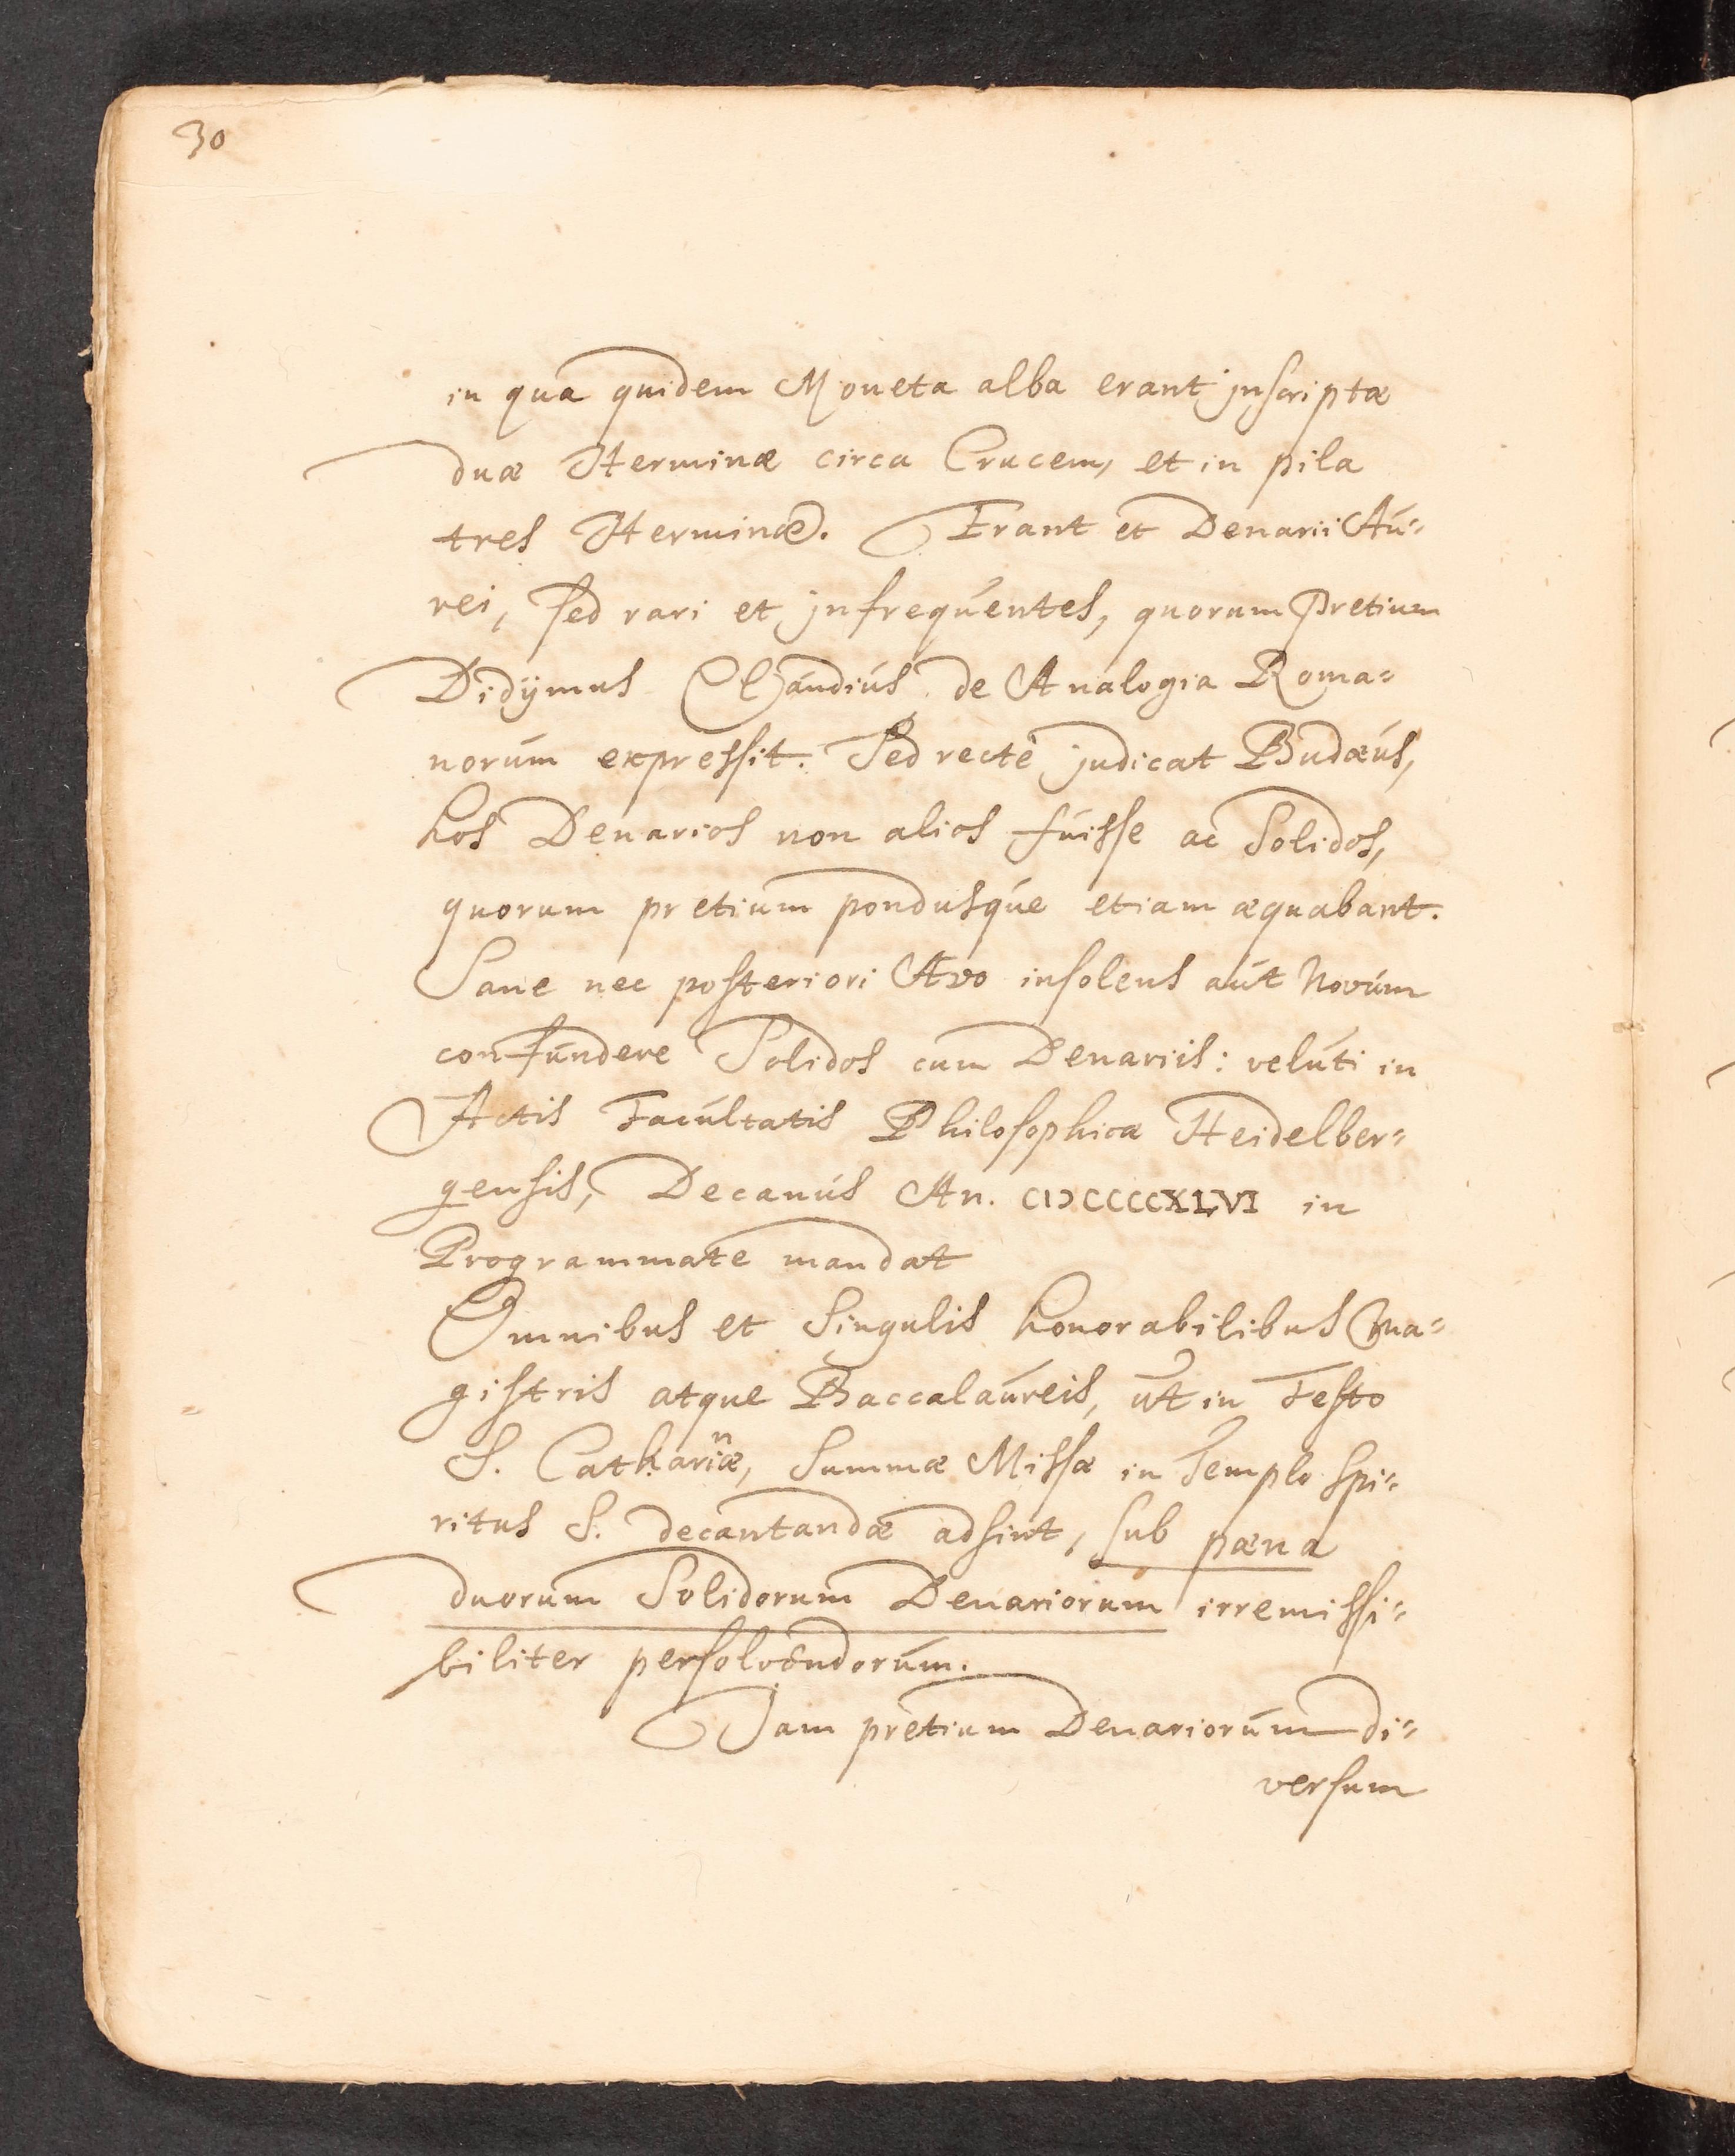 30
in qua quidem Moneta alba erant jnscriptæ
duæ Herminæ circa Crucem, et in pila
tres Herminæ. Erant et Denarii Au-
rei, sed rari et jnfrequentes, quorum pretium
Didÿmus Claudius de Analogia Roma-
norum expressit. Sed recte judicat Budæus,
hos Denarios non alios fuisse ac Solidos,
quorum pretium pondusque etiam æquabant.
Sane nec posteriori Ævo insolens aut Novum
confundere Solidos cum Denariis: veluti in
Actis Facultatis Philosophicæ Heidelber-
gensis, Decanus An. CIƆCCCCXLVI in
Programmate mandat
Omnibus et Singulis honorabilibus Ma-
gistris atque Baccalaureis, ut in Festo
S. Catharinæ, Summæ Missæ in Templo Spi-
ritus S. decantandæ adsint, sub pæna
duorum Solidorum Denariorum irremissi-
biliter persolvendorum.
Jam pretium Denariorum di-
versum